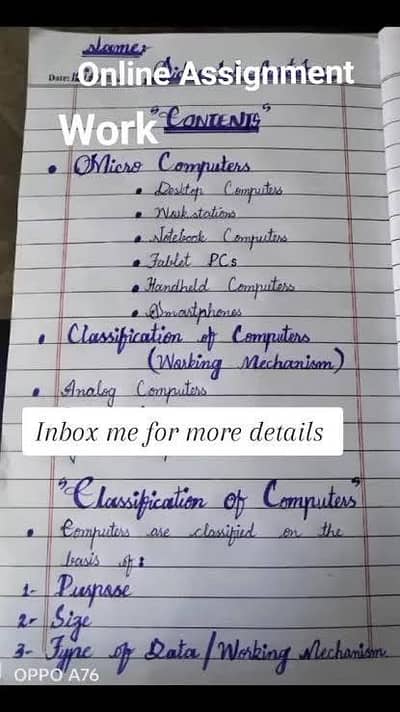 Name:
Date:
Online Assignment
Work "CONTENTS"
• Micro Computers
• Desktop Computers
• Workstations
• Notebook Computers
• Tablet PCs
• Handheld Computers
• Smartphones
• Classification of Computers
(Working Mechanism)
• Analog Computers
Inbox me for more details
"Classification of Computers"
• Computers are classified on the
basis of:
1- Purpose
2- Size
3- Type of Data/Working Mechanism
OPPO A76